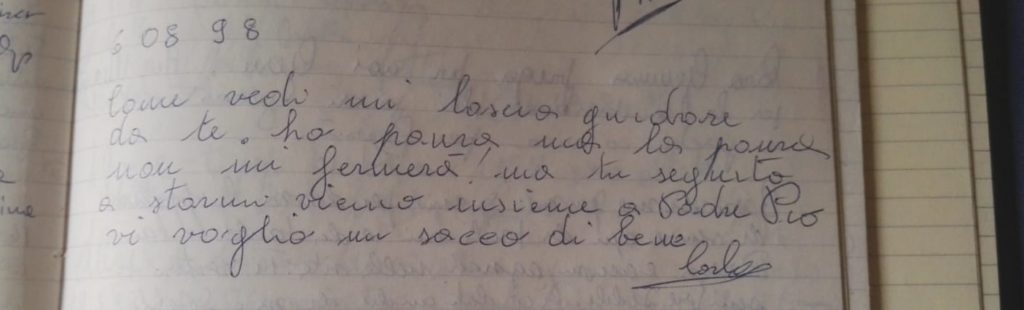 6 08 98
Come vedi mi lascio guidare
da te. ho paura ma la paura
non mi fermerà, ma tu seguita
a starmi vicino insieme a Padre Pio
vi voglio un sacco di bene